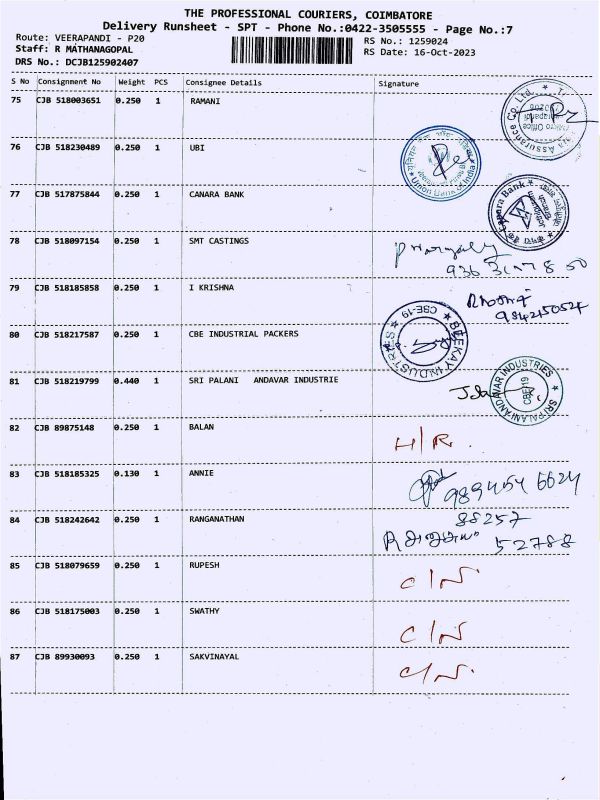 THE PROFESSIONAL COURIERS, COIMBATORE
Delivery Runsheet - SPT - Phone No.:0422-3505555 - Page No.:7
Route: VEERAPANDI - P20
RS No.: 1259024
Staff: R MATHANAGOPAL
RS Date: 16-Oct-2023
DRS No.: DCJB125902407
S No Consignment No Weight PCS Consignee Details Signature
75 CJB 518003651 0.250 1 RAMANI
76 CJB 518230489 0.250 1 UBI
Union Bank of India
77 CJB 517875844 0.250 1 CANARA BANK
Canara Bank
78 CJB 518097154 0.250 1 SMT CASTINGS
79 CJB 518185858 0.250 1 I KRISHNA
9842150524
80 CJB 518217587 0.250 1 CBE INDUSTRIAL PACKERS
BEEKAY INDUSTRIES CBE-19
81 CJB 518219799 0.440 1 SRI PALANI ANDAVAR INDUSTRIE
SRI PALANI ANDAVAR INDUSTRIES CBE-19
82 CJB 89875148 0.250 1 BALAN H/R.
83 CJB 518185325 0.130 1 ANNIE 989454 6624
84 CJB 518242642 0.250 1 RANGANATHAN 88257
52788
85 CJB 518079659 0.250 1 RUPESH C/N.
86 CJB 518175003 0.250 1 SWATHY C/N
87 CJB 89930093 0.250 1 SAKVINAYAL C/N.